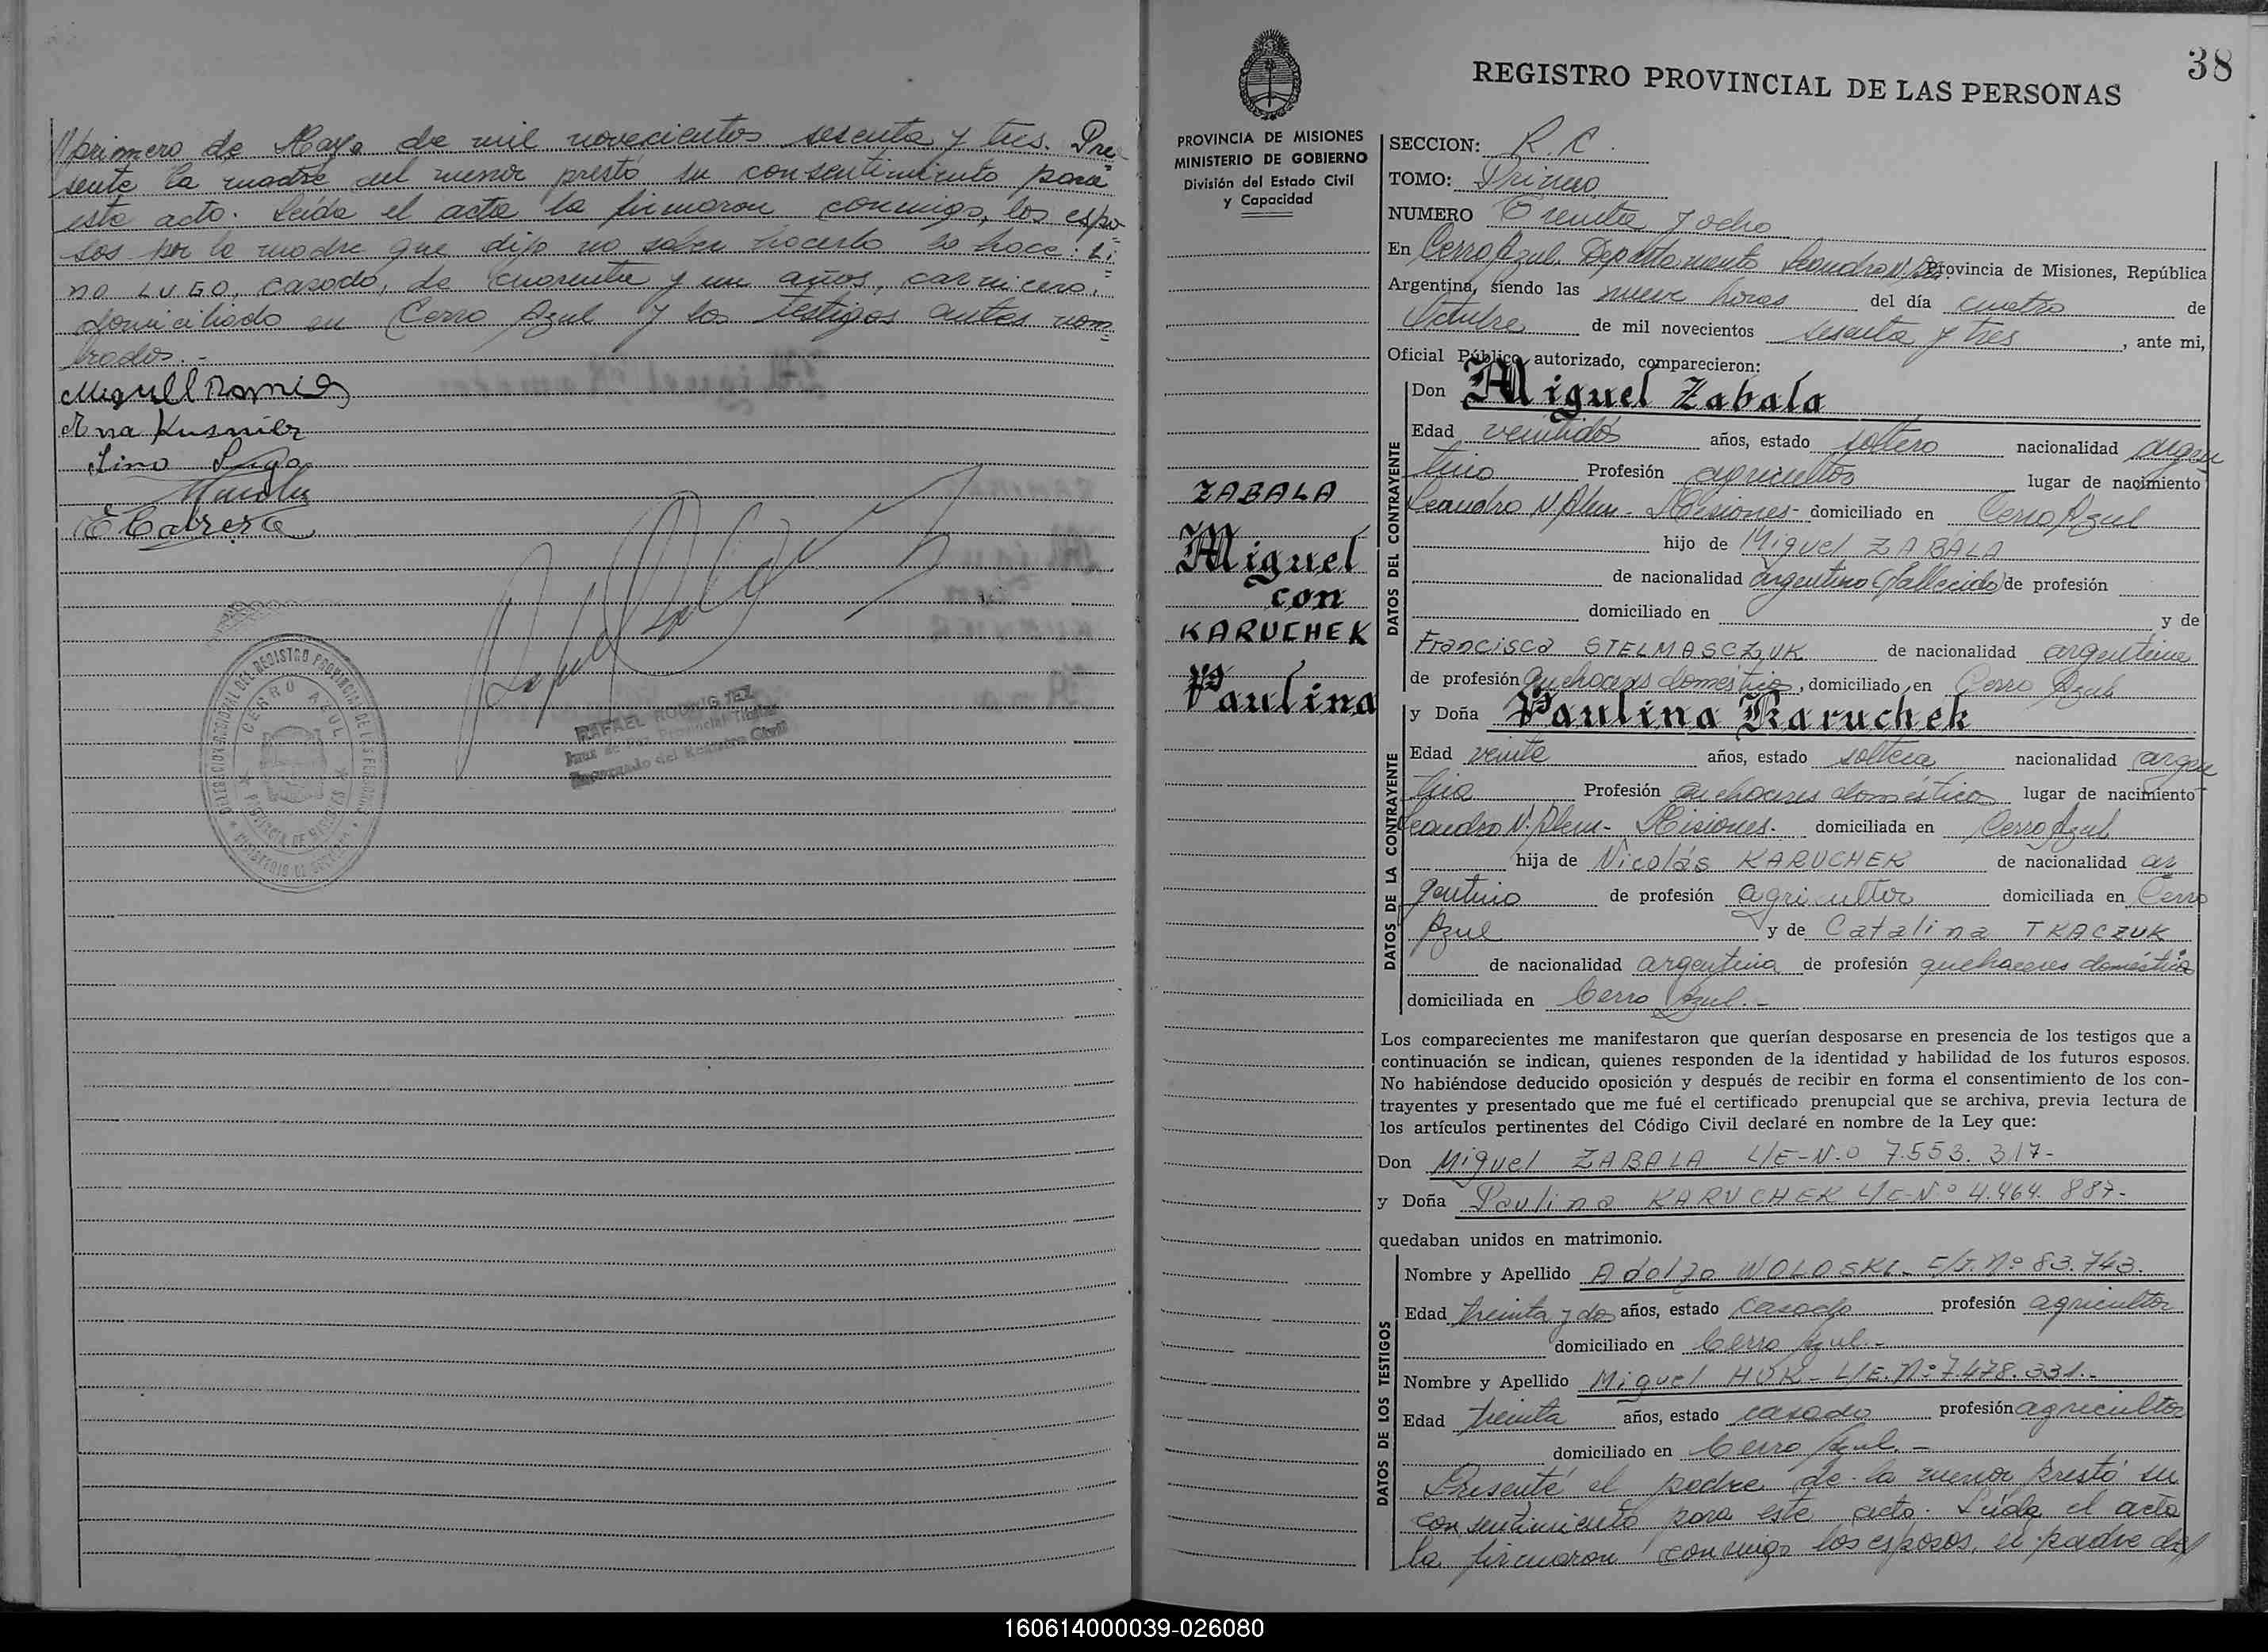 primero de Mayo de mil novecientos sesenta y tres. Pre=
sente la madre del menor prestó su consentimiento para
este acto. Leída el acta la firmaron conmigo, los espo=
sos por la madre que dijo no saber hacerlo lo hace: Li=
no LUGO, casado, de cuarenta y un años, carnicero,
domiciliado en Cerro Azul y los testigos antes nom=
brados.-
Miguel Ramirez
Ana Kusnier
Lino Lugo
E Cabrera
DELEGACION REGIONAL DEL REGISTRO PROVINCIAL DE LAS PERSONAS
CERRO AZUL
PROVINCIA DE MISIONES
MINISTERIO DE GOBIERNO
RAFAEL RODRIGUEZ
Juez de Paz Provincial Titular
Encargado del Registro Civil
38
REGISTRO PROVINCIAL DE LAS PERSONAS
PROVINCIA DE MISIONES
MINISTERIO DE GOBIERNO
División del Estado Civil
y Capacidad
ZABALA
Miguel
con
KARUCHEK
Paulina
SECCION: R. C.
TOMO: Primero
NUMERO Treinta y ocho
En Cerro Azul, Departamento Leandro N. Provincia de Misiones, República
Argentina, siendo las nueve horas del día cuatro de
Octubre de mil novecientos sesenta y tres, ante mi,
Oficial Público autorizado, comparecieron:
DATOS DEL CONTRAYENTE
Don Miguel Zabala
Edad veintidós años, estado soltero nacionalidad argen
tino Profesión agricultor lugar de nacimiento
Leandro N. Alem - Misiones - domiciliado en Cerro Azul
hijo de Miguel ZABALA
de nacionalidad argentino (fallecido) de profesión
domiciliado en y de
Francisca STELMASCZUK de nacionalidad argentina
de profesión quehaceres domésticos, domiciliado en Cerro Azul
DATOS DE LA CONTRAYENTE
y Doña Paulina Karuchek
Edad veinte años, estado soltera nacionalidad argen
tina Profesión quehaceres domésticos lugar de nacimiento
Leandro N. Alem - Misiones. domiciliada en Cerro Azul
hija de Nicolás KARUCHEK de nacionalidad ar
gentino de profesión agricultor domiciliada en Cerro
Azul y de Catalina TKACZUK
de nacionalidad argentina de profesión quehaceres domésticos
domiciliada en Cerro Azul.-
Los comparecientes me manifestaron que querían desposarse en presencia de los testigos que a
continuación se indican, quienes responden de la identidad y habilidad de los futuros esposos.
No habiéndose deducido oposición y después de recibir en forma el consentimiento de los con-
trayentes y presentado que me fué el certificado prenupcial que se archiva, previa lectura de
los artículos pertinentes del Código Civil declaré en nombre de la Ley que:
Don Miguel ZABALA L/E-N.º 7.553.317-
y Doña Paulina KARUCHEK L/C-Nº 4.464.887-
quedaban unidos en matrimonio.
DATOS DE LOS TESTIGOS
Nombre y Apellido Adolfo WOLOSKI- C/I. Nº 83.743.
Edad treinta y dos años, estado casado profesión agricultor
domiciliado en Cerro Azul-
Nombre y Apellido Miguel HUK- L/E. Nº 7.478.331.-
Edad treinta años, estado casado profesión agricultor
domiciliado en Cerro Azul.-
Presente el padre de la menor prestó su
consentimiento para este acto. Leída el acta
la firmaron conmigo los esposos, el padre de
160614000039-026080